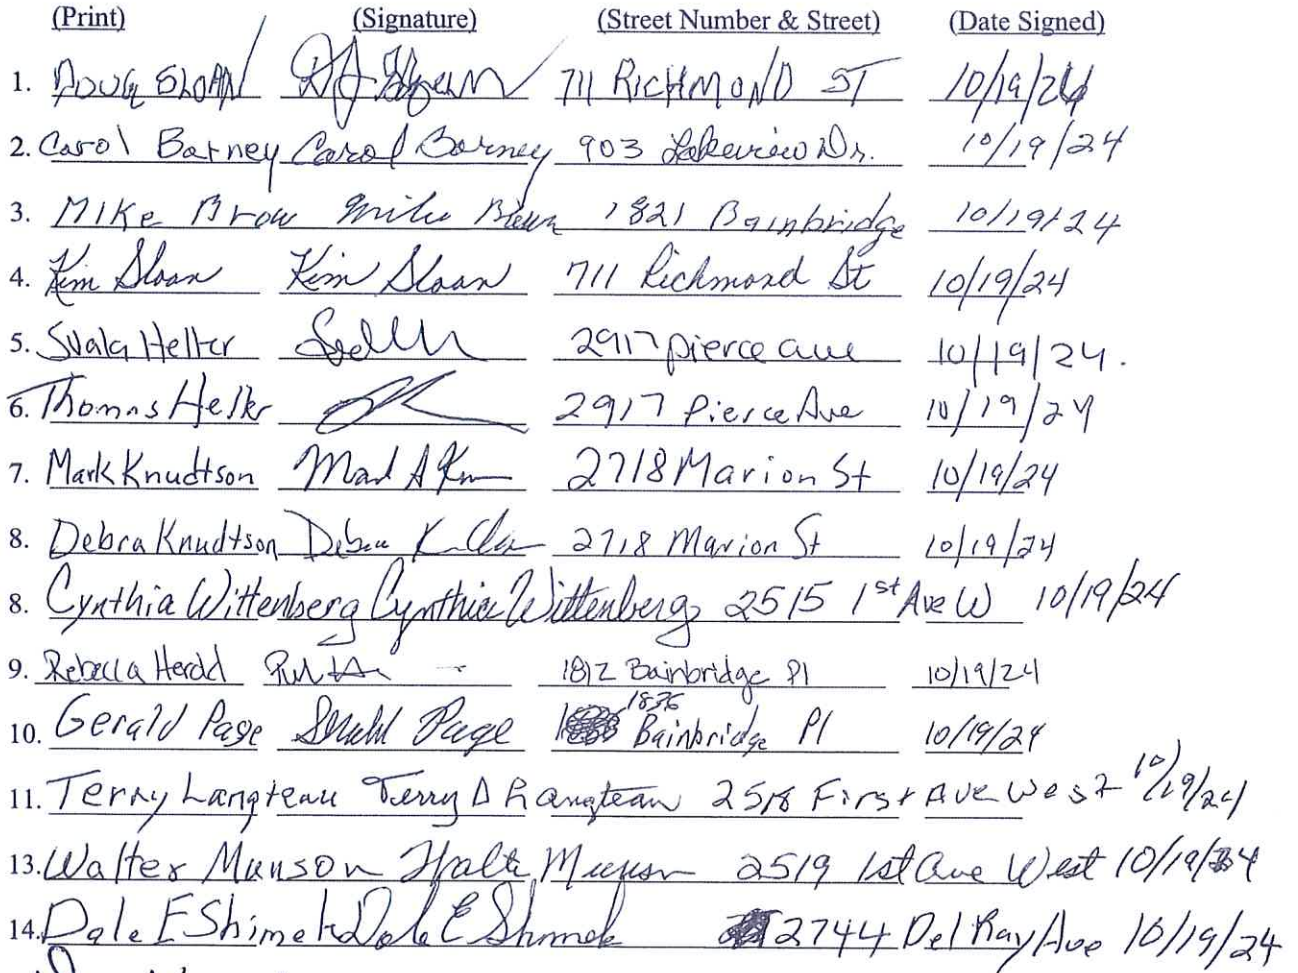 (Print) (Signature) (Street Number & Street) (Date Signed)
1. DOUG SLOAN 711 RICHMOND ST 10/19/24
2. Carol Barney Carol Barney 903 Lakeview Dr. 10/19/24
3. MIKe Brow Mike Brown 1821 Bainbridge 10/19/24
4. Kim Sloan Kim Sloan 711 Richmond St 10/19/24
5. Svala Heller 2917 pierce ave 10/19/24.
6. Thomas Heller 2917 Pierce Ave 10/19/24
7. Mark Knudtson 2718 Marion St 10/19/24
8. Debra Knudtson Debra 2718 Marion St 10/19/24
8. Cynthia Wittenberg Cynthia Wittenberg 2515 1st Ave W 10/19/24
9. Rebecca 1812 Bainbridge Pl 10/19/24
10. Gerald Page Gerald Page 1836 Bainbridge Pl 10/19/24
11. Terry Langteau Terry D Langteau 2518 First Ave West 10/19/24
13. Walter Munson Walter Munson 2519 1st Ave West 10/19/24
14. Dale E Shimek Dale E Shimek 2744 Del Ray Ave 10/19/24